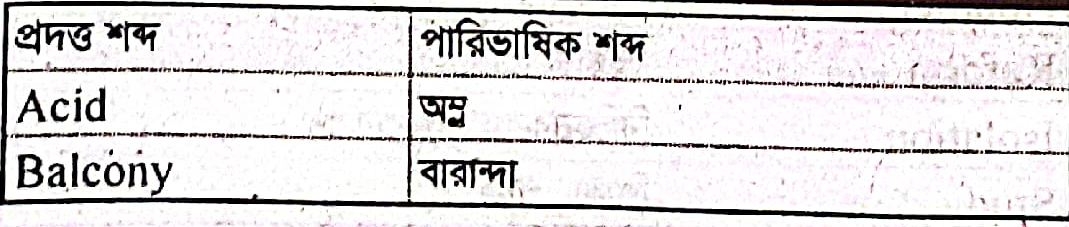 প্রদত্ত শব্দ পারিভাষিক শব্দ
Acid অম্ল
Balcony বারান্দা